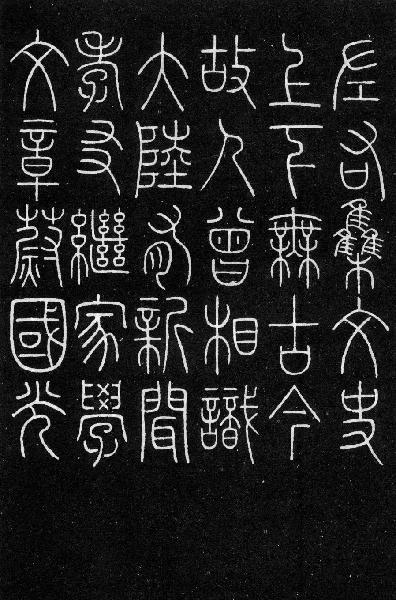 左右雧文史
上下無古今
故人曾相識
大陸有新聞
孝友繼家學
文章蔚國光